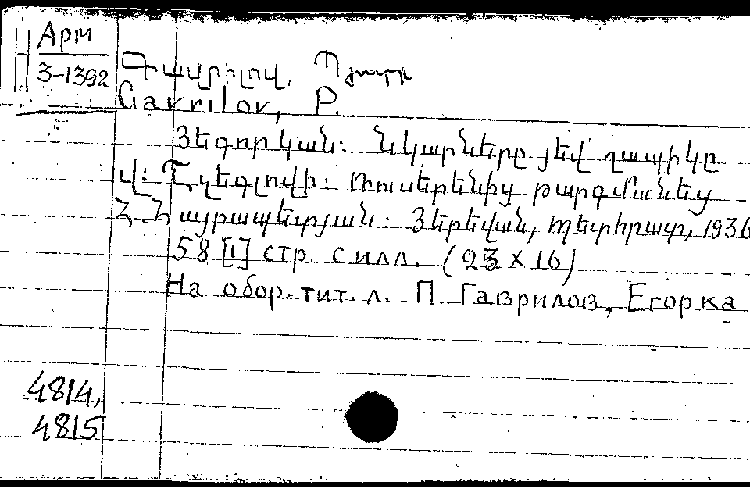 Арм
3-1392
Գավրիլով, Պյոտր
Gavrilov, P.
Յեգորկան: Նկարները յեվ կապիկը
Վ. Շչեգլովի: Ռուսերենից թարգմանեց
Հ. Հայրապետյան: Յերեվան, Պետհրատ, 1936
58 [1] стр. с илл. (23 × 16)
На обор. тит. л. П. Гаврилов, Егорка
4814,
4815